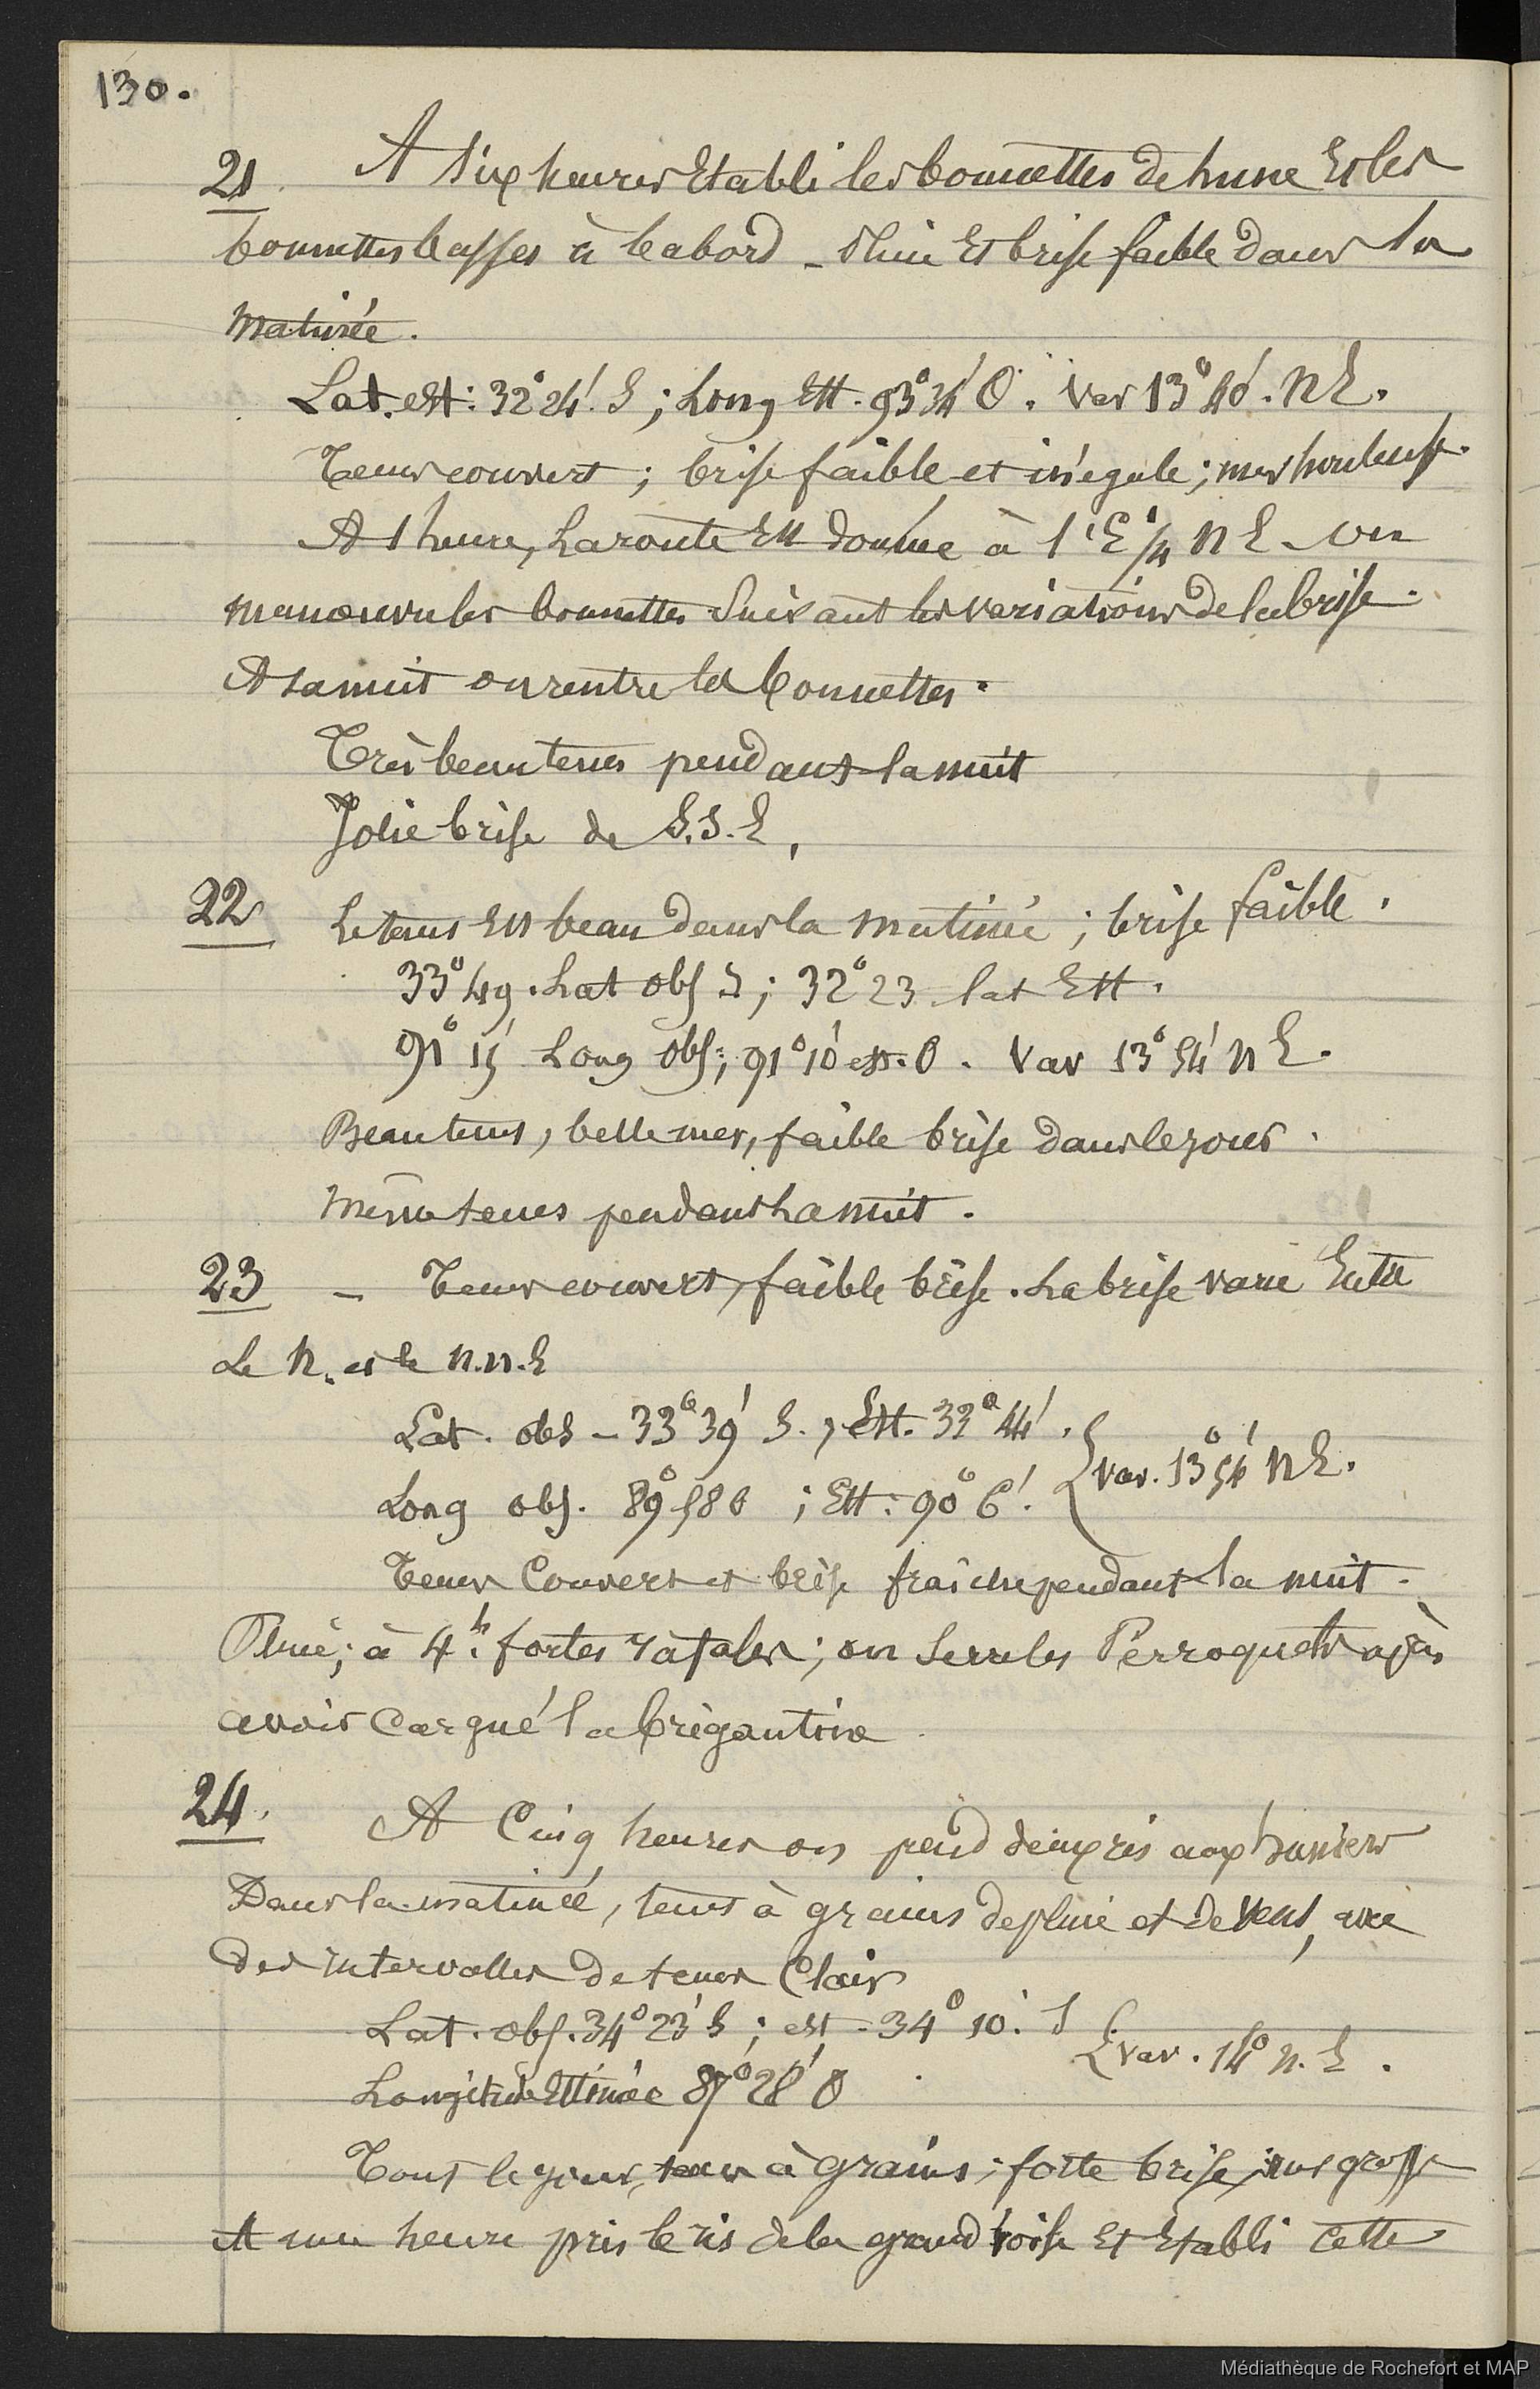 130.
21. A six heures Etabli les bonnettes de hune Et les
bonnettes basses à babord _ Pluie Et brise faible dans la
matinée.
Lat. est: 32° 24' S ; Long Est. 93° 34' O. Var 13° 40'. NE.
Tems couvert ; brise faible et inégale ; mer houleuse.
A 1 heure, La route Est donnée à l'E 1/4 NE _ on
manoeuvre les bonnettes Suivant les variations de la brise.
A la nuit on rentre les bonnettes.
Très beau tems pendant la nuit
Jolie brise de S.S.E,
22 Le tems Est beau dans la matinée ; brise faible.
33° 49. Lat obs S ; 32° 23 lat Est.
91° 15' Long obs ; 91° 10' est. O. Var 13° 54' NE.
Beau tems, belle mer, faible brise dans le jour.
Même tems pendant la nuit.
23 _ Tems couvert, faible brise. La brise varie Entre
Le N. et le N.N.E
Lat. obs _ 33° 39' S. , Est. 33° 44'.
{ var. 13° 54' NE.
Long obs. 89° 58 O ; Est : 90° 6'.
Tems Couvert et brise fraîche pendant la nuit.
Pluie; à 4h. fortes rafales; on serre les Perroquets après
avoir Cargué la brigantine
24. A Cinq heures on prend deux ris aux huniers
Dans la matinée, tems à grains de pluie et de vent, avec
des intervalles de tems Clair
Lat. obs. 34° 23' S ; est _ 34° 10'. S
{ var. 14° N.E.
Longitude Estimée 87° 28' O
Tout le jour, tems à grains ; forte brise, mer grosse
A une heure pris le ris de la grand'voile Et Etabli cette
Médiathèque de Rochefort et MAP